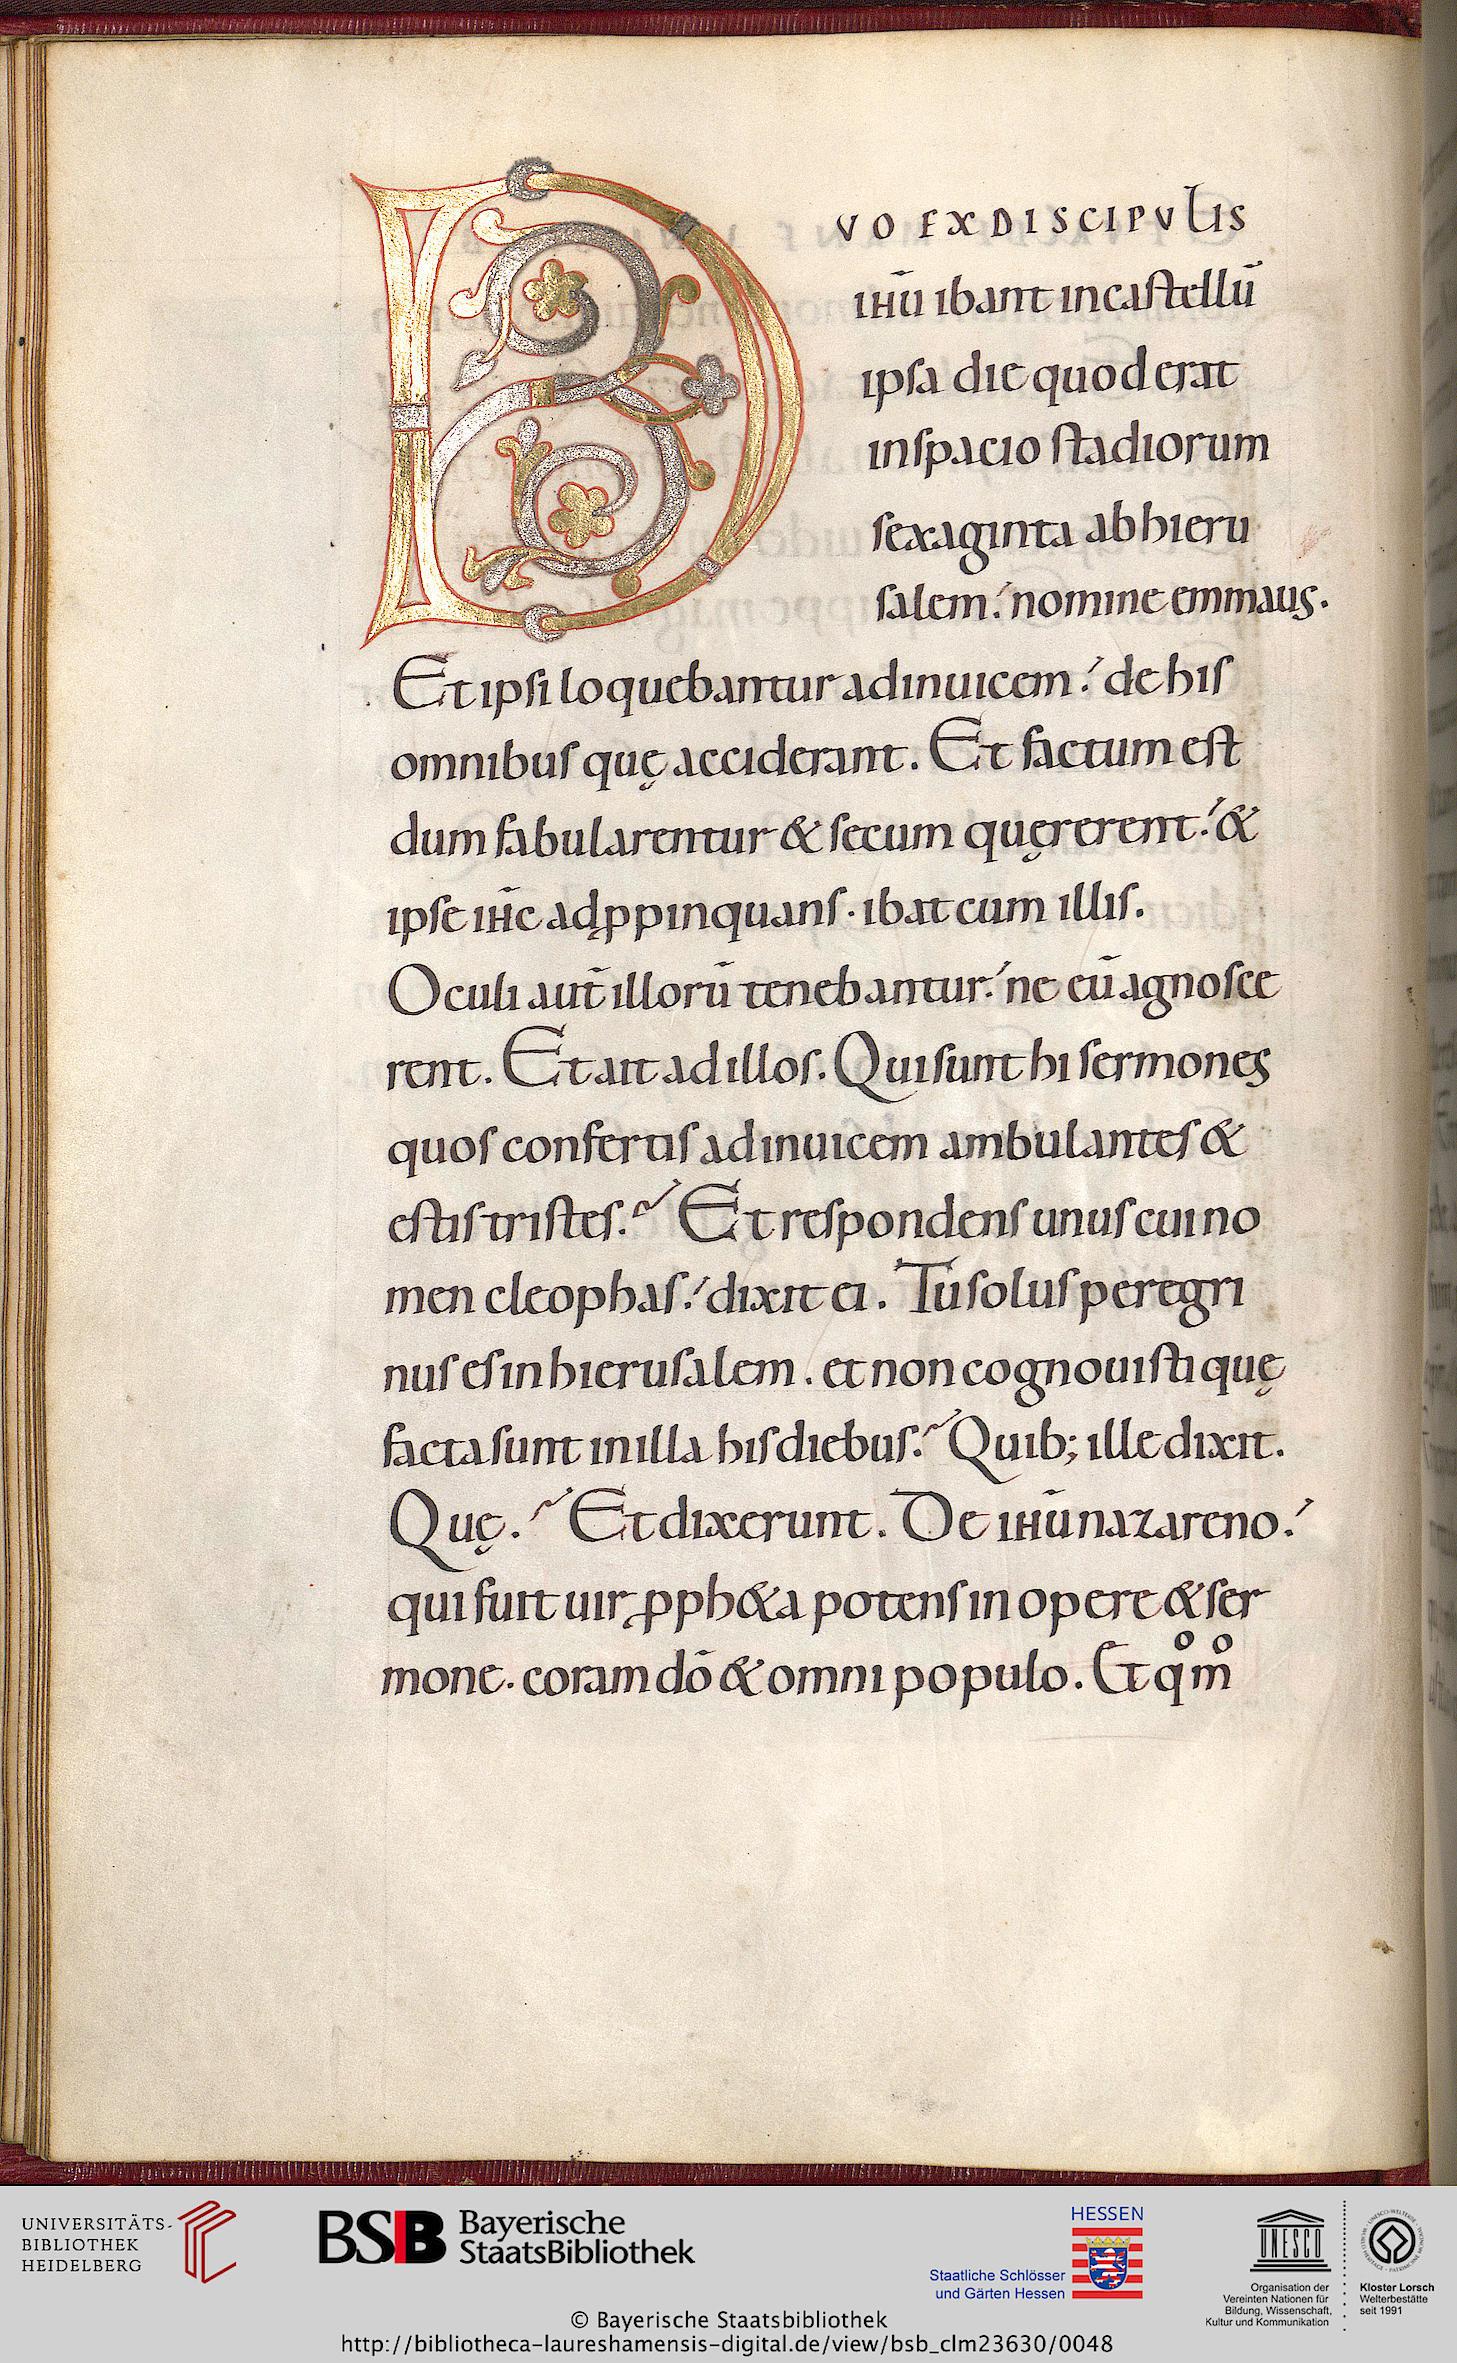 DVO EX DISCIPVLIS
ihū ibant in castellū
ipsa die quod erat
in spacio stadiorum
sexaginta ab hieru
salem. nomine emmaus.
Et ipsi loquebantur adinuicem. de his
omnibus quę acciderant. Et factum est
dum fabularentur & secum quęrerent. &
ipse ihc̄ adꝓpinquans. ibat cum illis.
Oculi aut̄ illorū tenebantur. ne eū agnosce
rent. Et ait ad illos. Qui sunt hi sermones
quos confertis adinuicem ambulantes &
estis tristes. Et respondens unus cui no
men cleophas. dixit ei. Tu solus peregri
nus es in hierusalem. et non cognouisti quę
facta sunt in illa his diebus. Quib; ille dixit.
Quę. Et dixerunt. De ihū nazareno.
qui fuit uir ꝓph&a potens in opere & ser
mone. coram dō & omni populo. Et qͦmͦ
UNIVERSITÄTS-
BIBLIOTHEK
HEIDELBERG
BSB Bayerische
StaatsBibliothek
HESSEN
Staatliche Schlösser
und Gärten Hessen
UNESCO
Organisation der
Vereinten Nationen für
Bildung, Wissenschaft,
Kultur und Kommunikation
Kloster Lorsch
Welterbestätte
seit 1991
© Bayerische Staatsbibliothek
http://bibliotheca-laureshamensis-digital.de/view/bsb_clm23630/0048